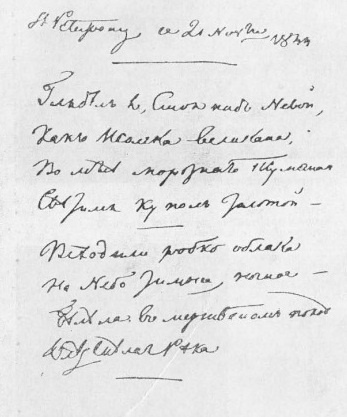 St Petersbourg ce 21 Novbre 1844
Глядѣлъ я, стоя надъ Невой,
Какъ Исаака великана,
Во мглѣ морознаго тумана
Свѣтился куполъ золотой –
Всходили робко облака
На Небо зимнее, ночное –
Бѣлѣла въ мертвенномъ покоѣ
Оледенѣлая Рѣка